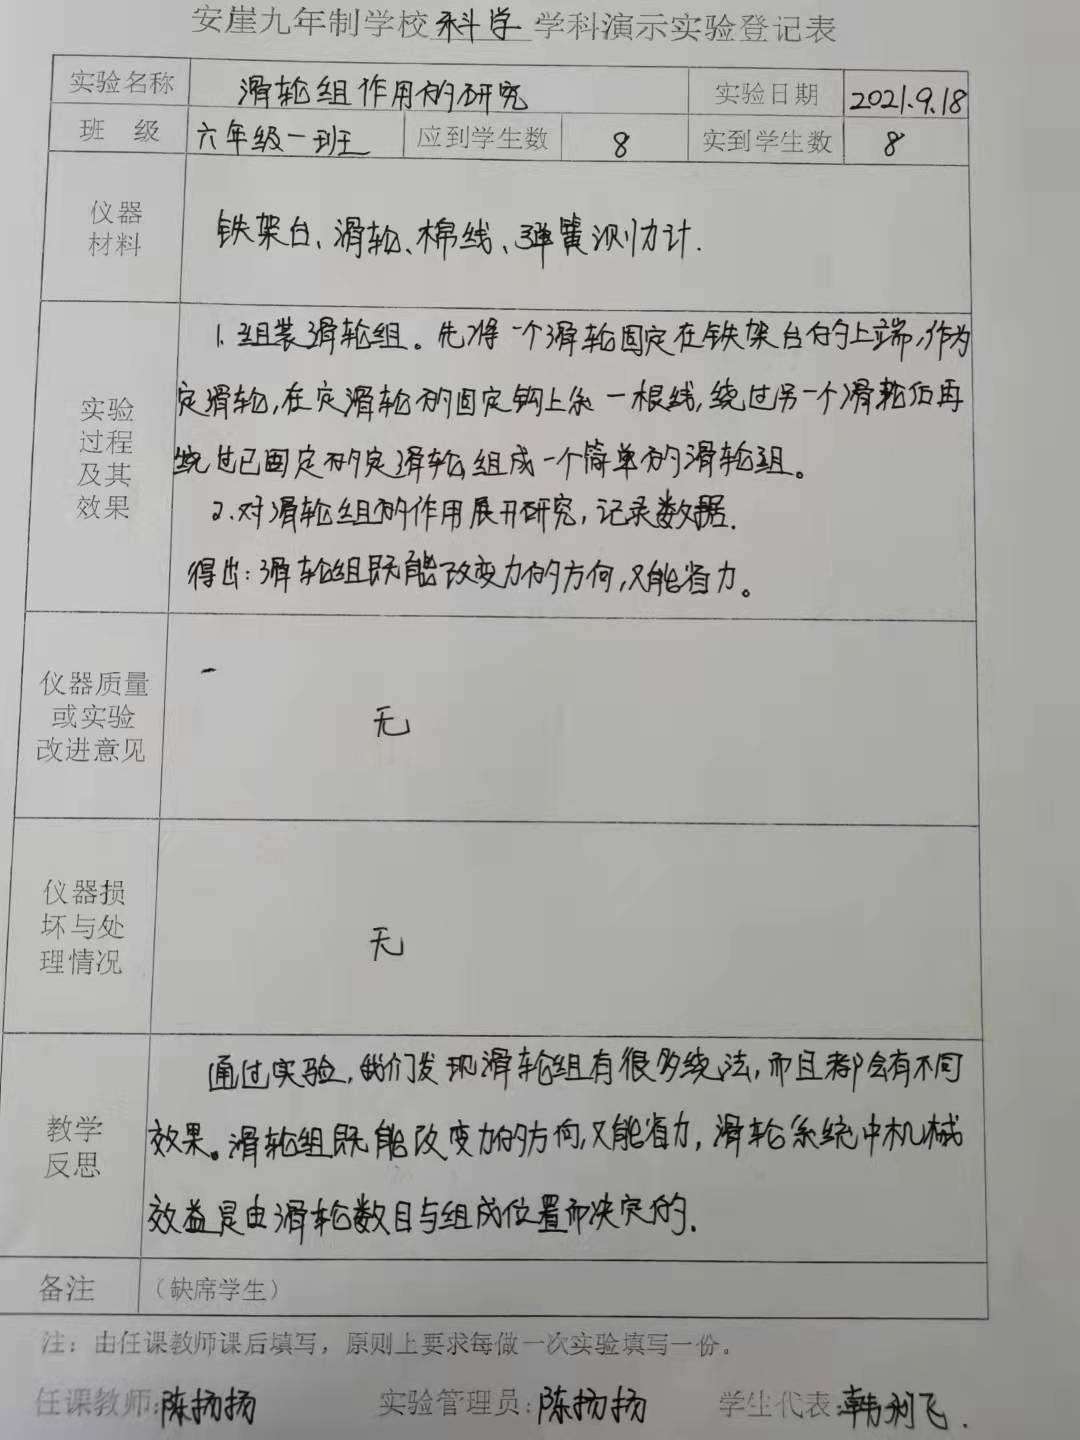 安崖九年制学校科学学科演示实验登记表
实验名称 滑轮组作用的研究 实验日期 2021.9.18
班 级 六年级一班 应到学生数 8 实到学生数 8
仪器
材料
铁架台、滑轮、棉线、弹簧测力计.
实验
过程
及其
效果
1.组装滑轮组。先将一个滑轮固定在铁架台的上端,作为
定滑轮,在定滑轮的固定钩上系一根线,绕过另一个滑轮后再
绕过已固定的定滑轮,组成一个简单的滑轮组。
2.对滑轮组的作用展开研究,记录数据.
得出:滑轮组既能改变力的方向,又能省力。
仪器质量
或实验
改进意见
无
仪器损
坏与处
理情况
无
教学
反思
通过实验,我们发现滑轮组有很多绕法,而且都会有不同
效果。滑轮组既能改变力的方向,又能省力,滑轮系统中机械
效益是由滑轮数目与组成位置而决定的.
备注 （缺席学生）
注：由任课教师课后填写，原则上要求每做一次实验填写一份。
任课教师:陈扬扬 实验管理员:陈扬扬 学生代表:韩利飞.